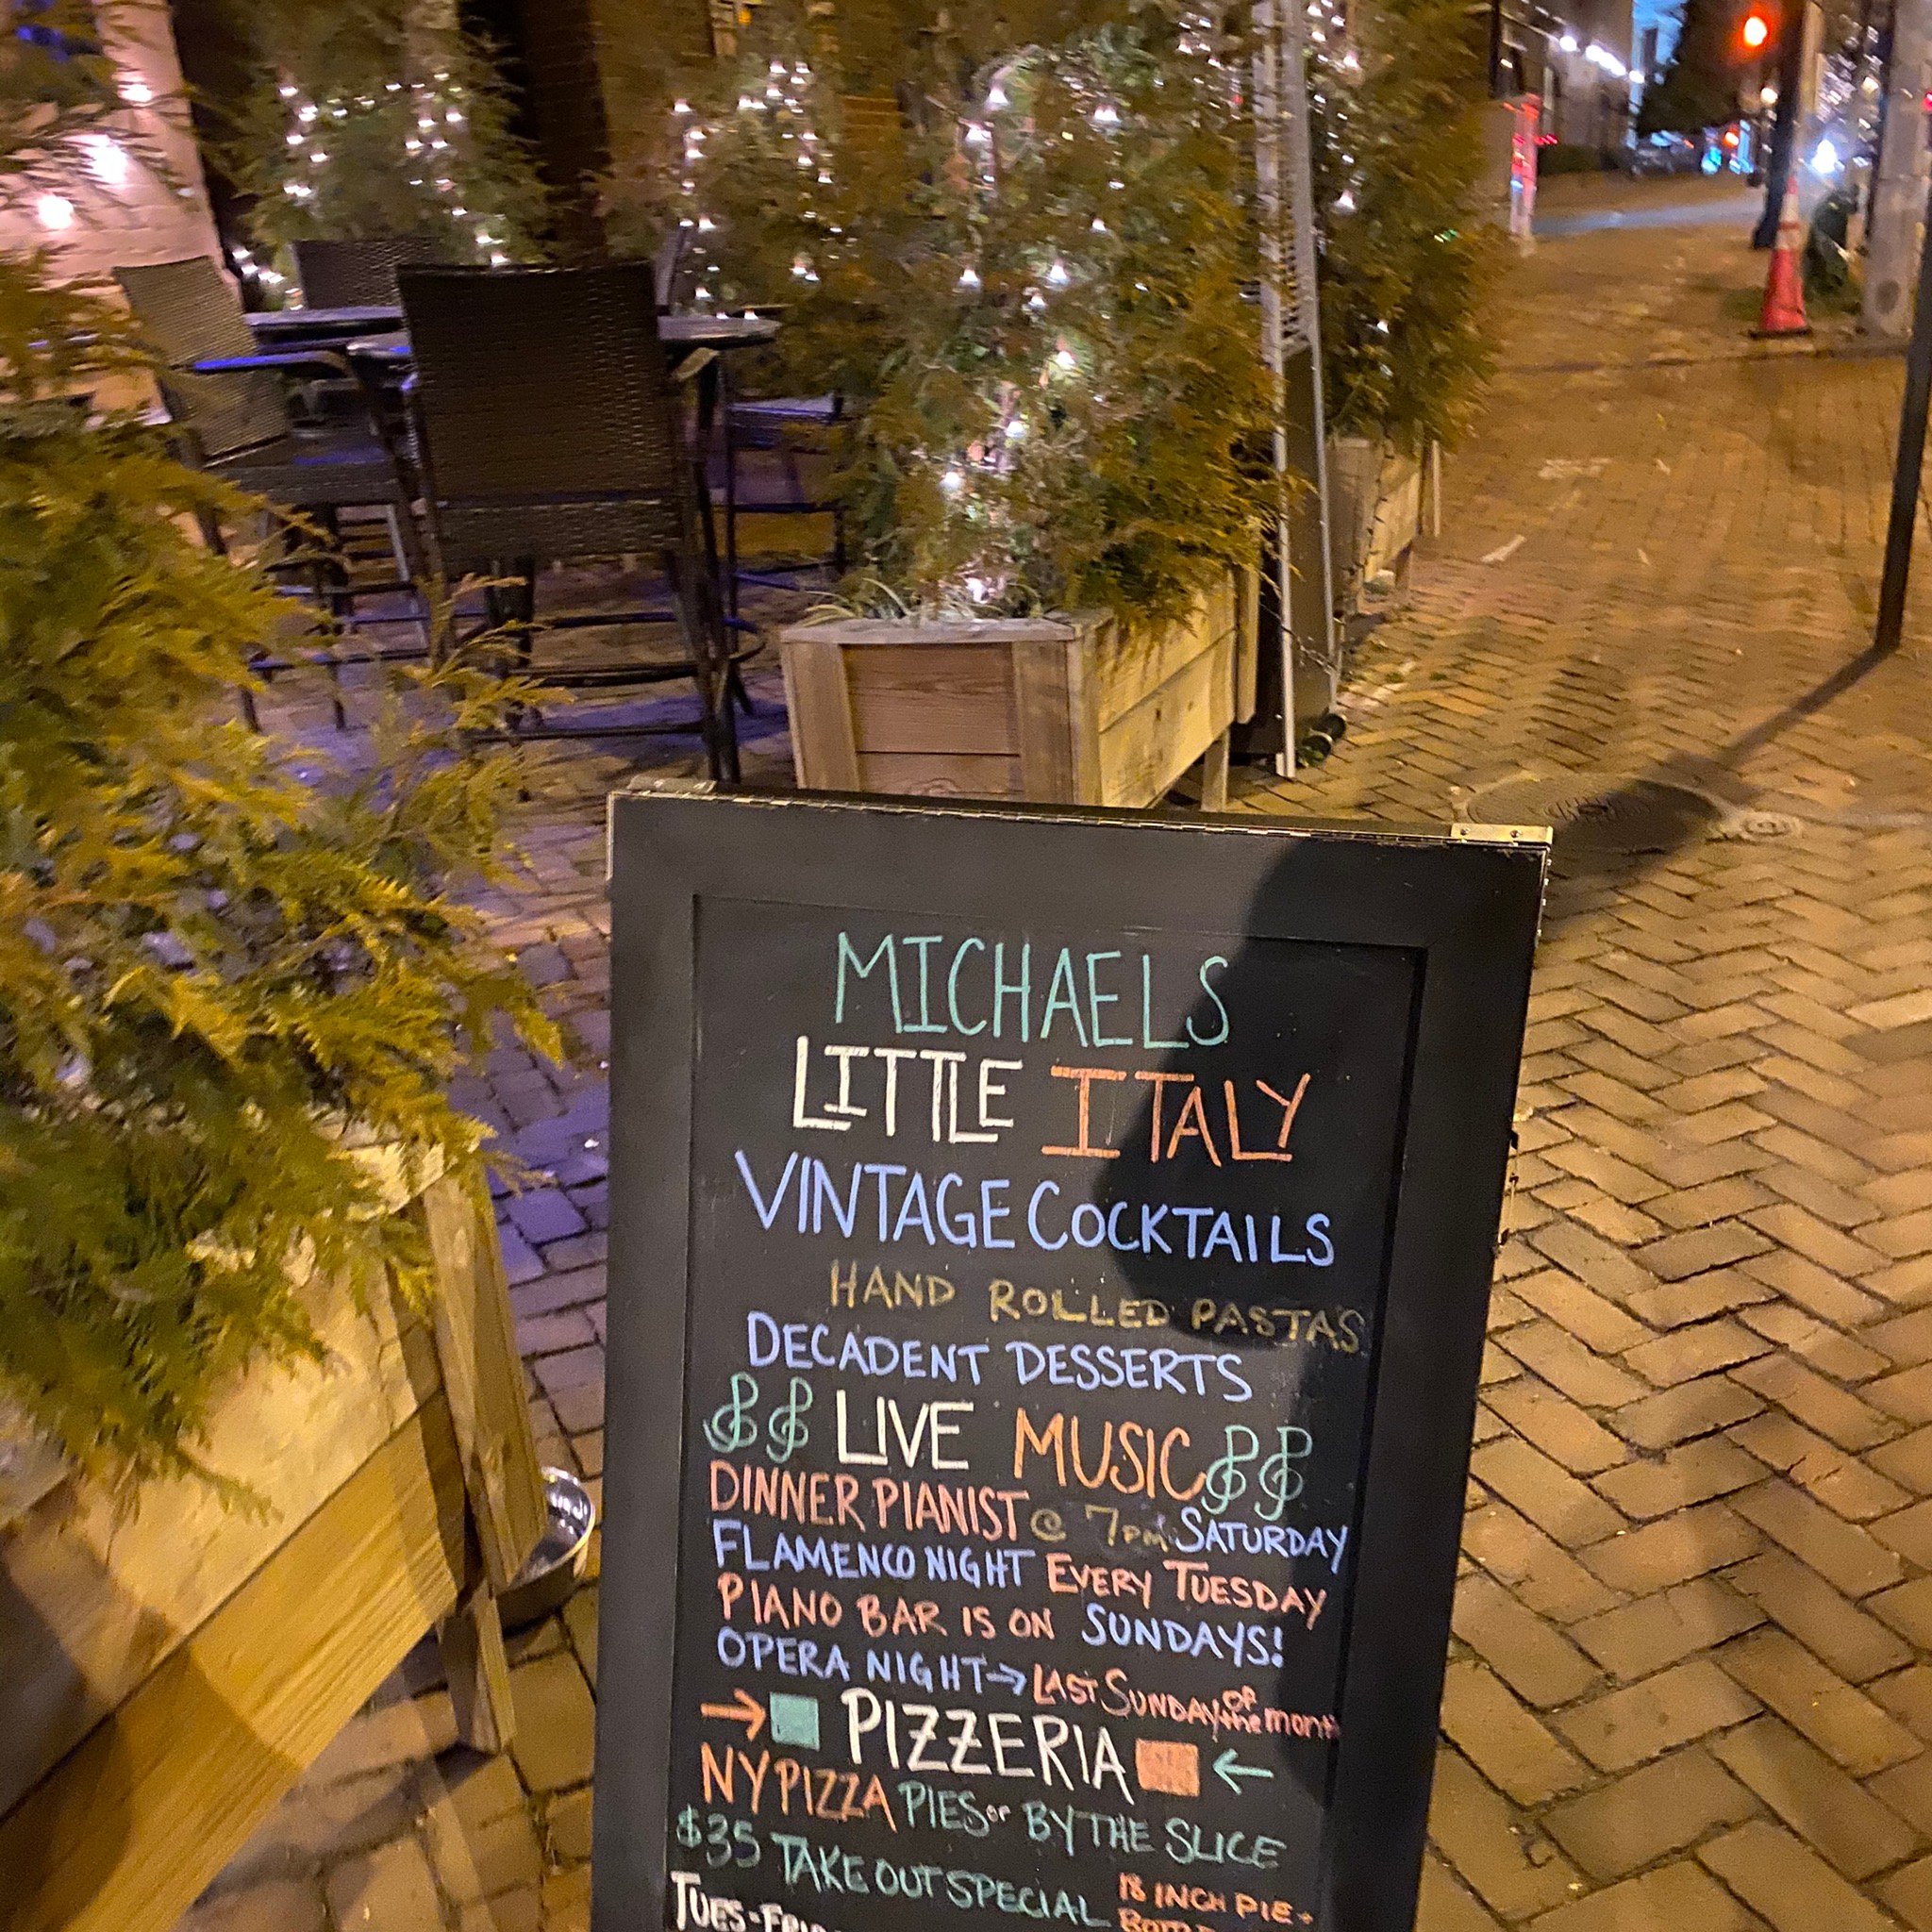 MICHAELS
LITTLE ITALY
VINTAGE COCKTAILS
HAND ROLLED PASTAS
DECADENT DESSERTS
LIVE MUSIC
DINNER PIANIST @ 7pm SATURDAY
FLAMENCO NIGHT EVERY TUESDAY
PIANO BAR IS ON SUNDAYS!
OPERA NIGHT → LAST SUNDAY OF the month
→ PIZZERIA ←
NY PIZZA PIES or BY THE SLICE
$35 TAKE OUT SPECIAL 18 INCH PIE +
TUES-